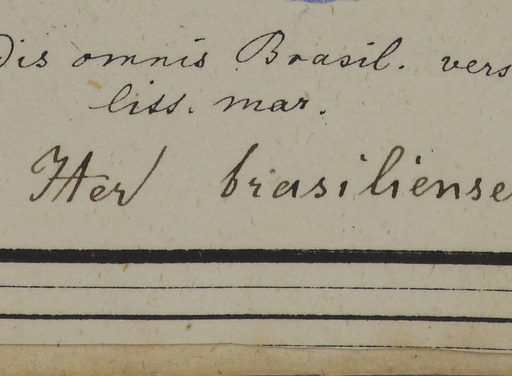 Dis omnis Brasil. vers
liss. mar.
Iter brasiliense